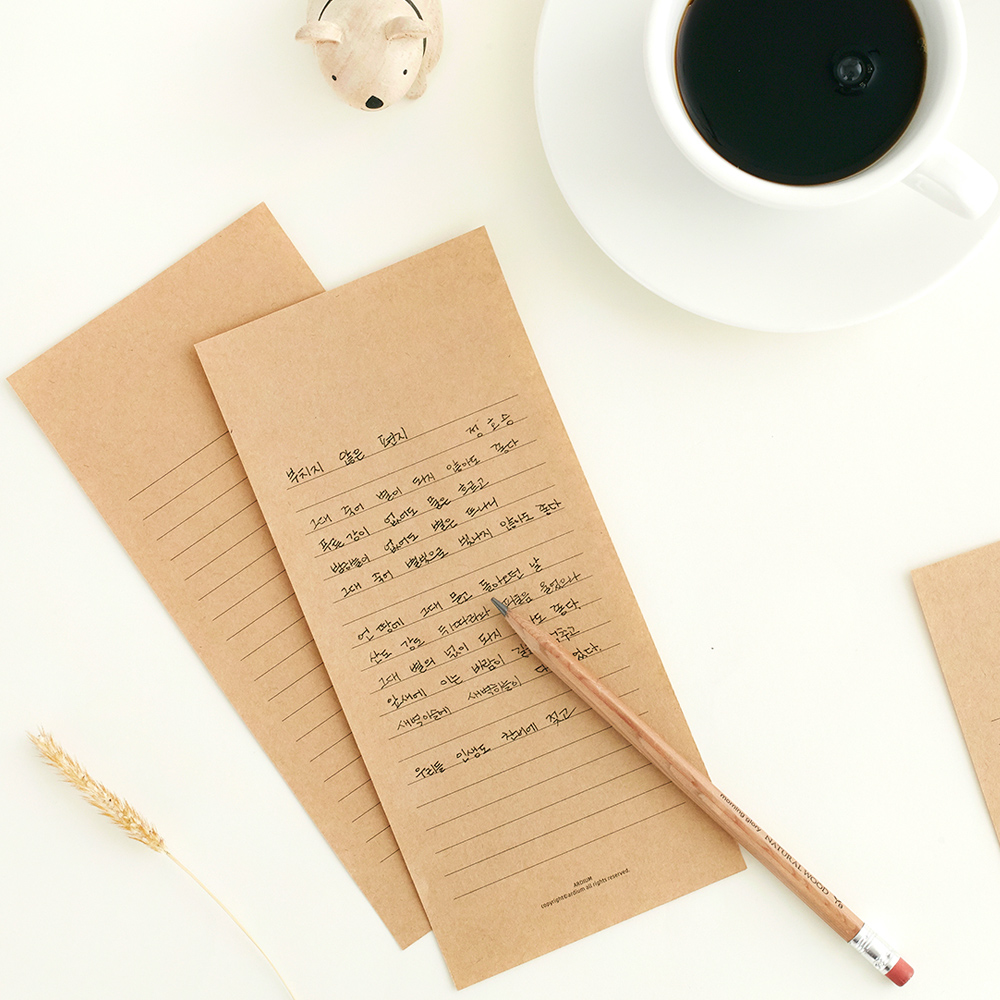 부치지 않은 편지 정호승
그대 죽어 별이 되지 않아도 좋다
푸른 강이 없어도 물은 흐르고
밤하늘이 없어도 별은 뜨나니
그대 죽어 별빛으로 빛나지 않아도 좋다
언 땅에 그대 묻고 돌아오던 날
산도 강도 뒤따라와 피울음 울었으나
그대 별의 넋이 되지 도 좋다.
잎새에 이는 바람이 길을 멈추고
새벽이슬에 새벽하늘이 다 었다.
우리들 인생도 찬비에 젖고
ARDIUM
copyright©ardium all rights reserved.
morning glory NATURAL WOOD